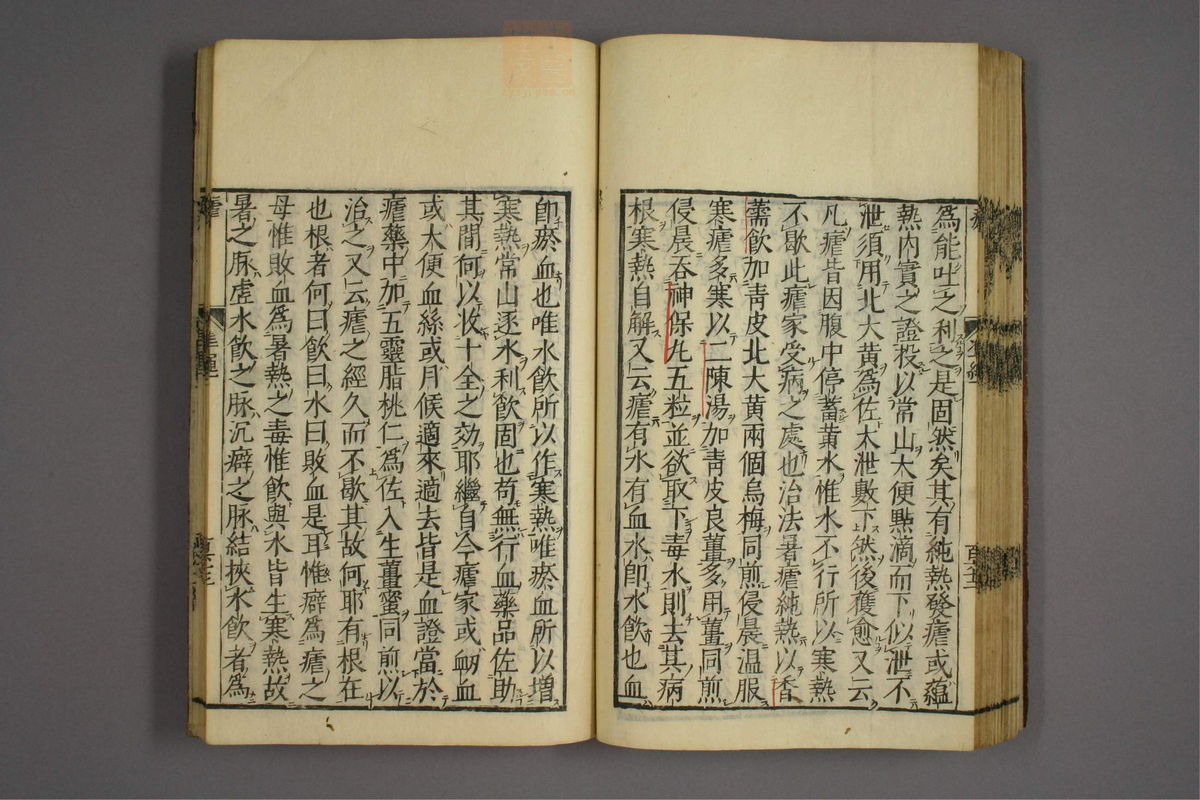 為能吐之利之是固然矣其有純熱發瘧或蘊
熱內實之證投以常山大便點滴而下似泄不
泄須用北大黃為佐大泄數下然後獲愈又云
凡瘧皆因腹中停蓄黃水惟水不行所以寒熱
不歇此瘧家受病之處也治法暑瘧純熱以香
薷飲加靑皮北大黃兩個烏梅同煎侵晨溫服
寒瘧多寒以二陳湯加靑皮良薑多用薑同煎
侵晨吞神保丸五粒並欲取下毒水則去其病
根寒熱自解又云瘧有水有血水卽水飲也血
卽瘀血也唯水飲所以作寒熱唯瘀血所以增
寒熱常山逐水利飲固也苟無行血藥品佐助
其間何以收十全之效耶繼自今瘧家或衂血
或大便血絲或月候適來適去皆是血證當於
瘧藥中加五靈脂桃仁為佐入生薑蜜同煎以
治之又云瘧之經久而不歇其故何耶有根在
也根者何曰飲曰水曰敗血是耳惟癖為瘧之
母惟敗血為暑熱之毒惟飲與水皆生寒熱故
暑之脉虛水飲之脉沉癖之脉結挾水飲者為
瘧